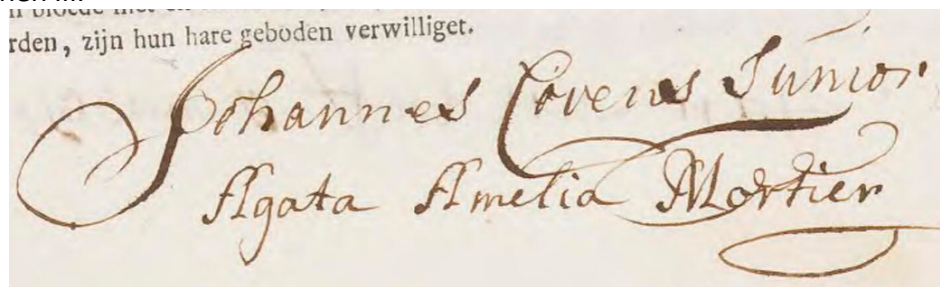 rden, zijn hun hare geboden verwilliget.
Johannes Covens Junior
Agata Amelia Mortier